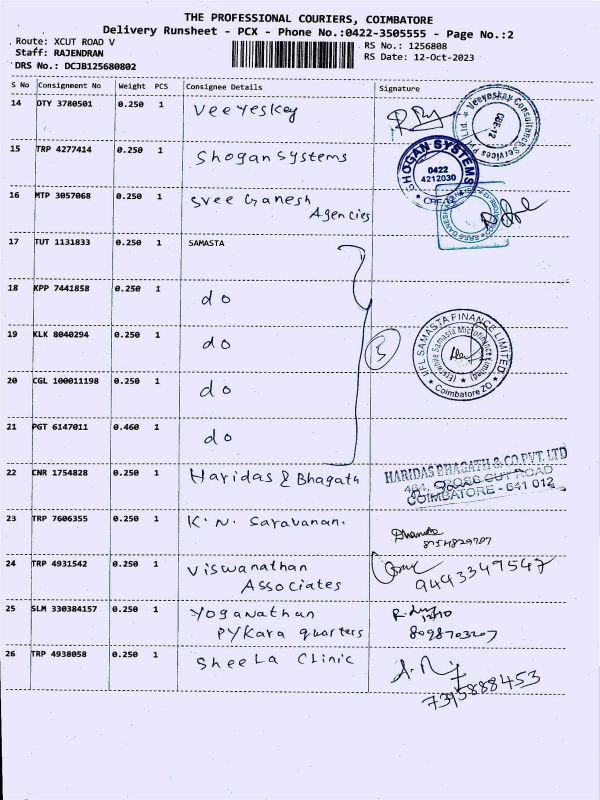 THE PROFESSIONAL COURIERS, COIMBATORE
Delivery Runsheet - PCX - Phone No.:0422-3505555 - Page No.:2
Route: XCUT ROAD V
RS No.: 1256808
Staff: RAJENDRAN
RS Date: 12-Oct-2023
DRS No.: DCJB125680802
S No Consignment No Weight PCS Consignee Details Signature
14 OTY 3780501 0.250 1 Veeyeskay
Veeyeskay Consultancy Services P Ltd.
CBE-12
15 TRP 4277414 0.250 1 Shogan Systems
SHOGAN SYSTEMS
0422
4212030
CBE-12
16 MTP 3057068 0.250 1 Sree Ganesh
Agencies
17 TUT 1131833 0.250 1 SAMASTA
18 KPP 7441858 0.250 1 do
19 KLK 8040294 0.250 1 do
3
IIFL SAMASTA FINANCE LIMITED.
(Erstwhile Samasta Microfinance Limited)
Coimbatore ZO
20 CGL 100011198 0.250 1 do
21 PGT 6147011 0.460 1 do
22 CNR 1754828 0.250 1 Haridas & Bhagath
HARIDAS BHAGATH & CO PVT. LTD
464, CROSS CUT ROAD
COIMBATORE - 641 012
23 TRP 7606355 0.250 1 K. N. Saravanan.
24 TRP 4931542 0.250 1 Viswanathan
Associates
9443349547
25 SLM 330384157 0.250 1 Yoganathan
Pykara quarters
12/10
8098703207
26 TRP 4938058 0.250 1 Sheela Clinic
7395888453